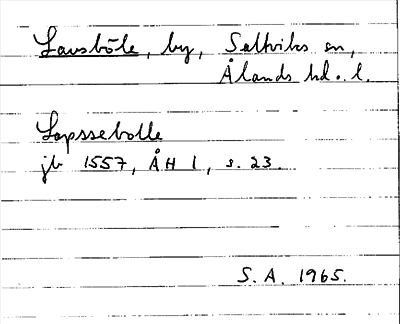 Lavsböle, by, Saltviks sn,
Ålands hd. l.
Lapssebolle
jb 1557, ÅH 1, s. 23.
S. A. 1965.